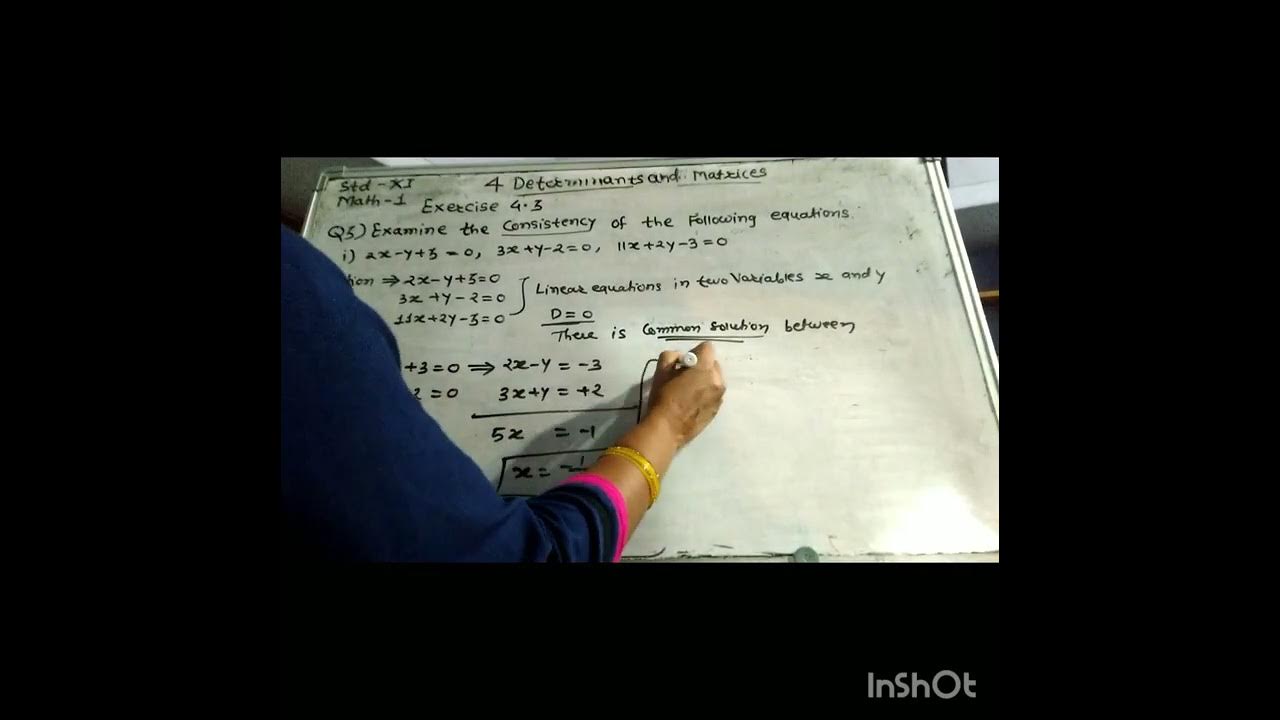 Std - XI
4 Determinants and Matrices
Math-1 Exercise 4.3
Q3) Examine the Consistency of the Following equations.
i) 2x-y+3=0, 3x+y-2=0, 11x+2y-3=0
tion ⇒ 2x-y+3=0
3x+y-2=0
11x+2y-3=0
Linear equations in two Variables x and y
D=0
There is Common solution between
+3=0 ⇒ 2x-y = -3
2=0 3x+y = +2
5x = -1
x = -1
InShOt